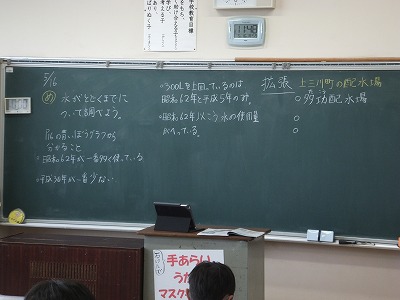 学校教育目標
5/16
め 水がとどくまでに
ついて調べよう。
P16の青いぼうグラフから
分かること
○昭和62年が一番多く使っている
○平成30年が一番少ない
○300Lを上回っているのは
昭和62年と平成5年のみ。
○昭和62年以こう水の使用量
がへっている。
拡張
上三川町の配水場
○多功配水場
○
○
手あらい
うが
マスク